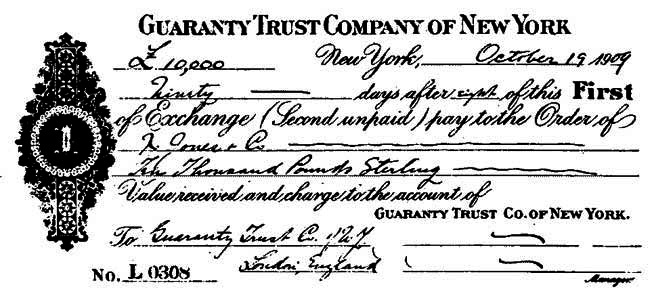 GUARANTY TRUST COMPANY OF NEW YORK
£ 10,000 New York, October 19 1909
Ninety days after sight of this First
of Exchange (Second unpaid) pay to the Order of
Jones & Co
Ten Thousand Pounds Sterling
Value received and charge to the account of
GUARANTY TRUST CO. OF NEW YORK.
To Guaranty Trust Co. of N.Y.
No. L 0308 London, England
Manager